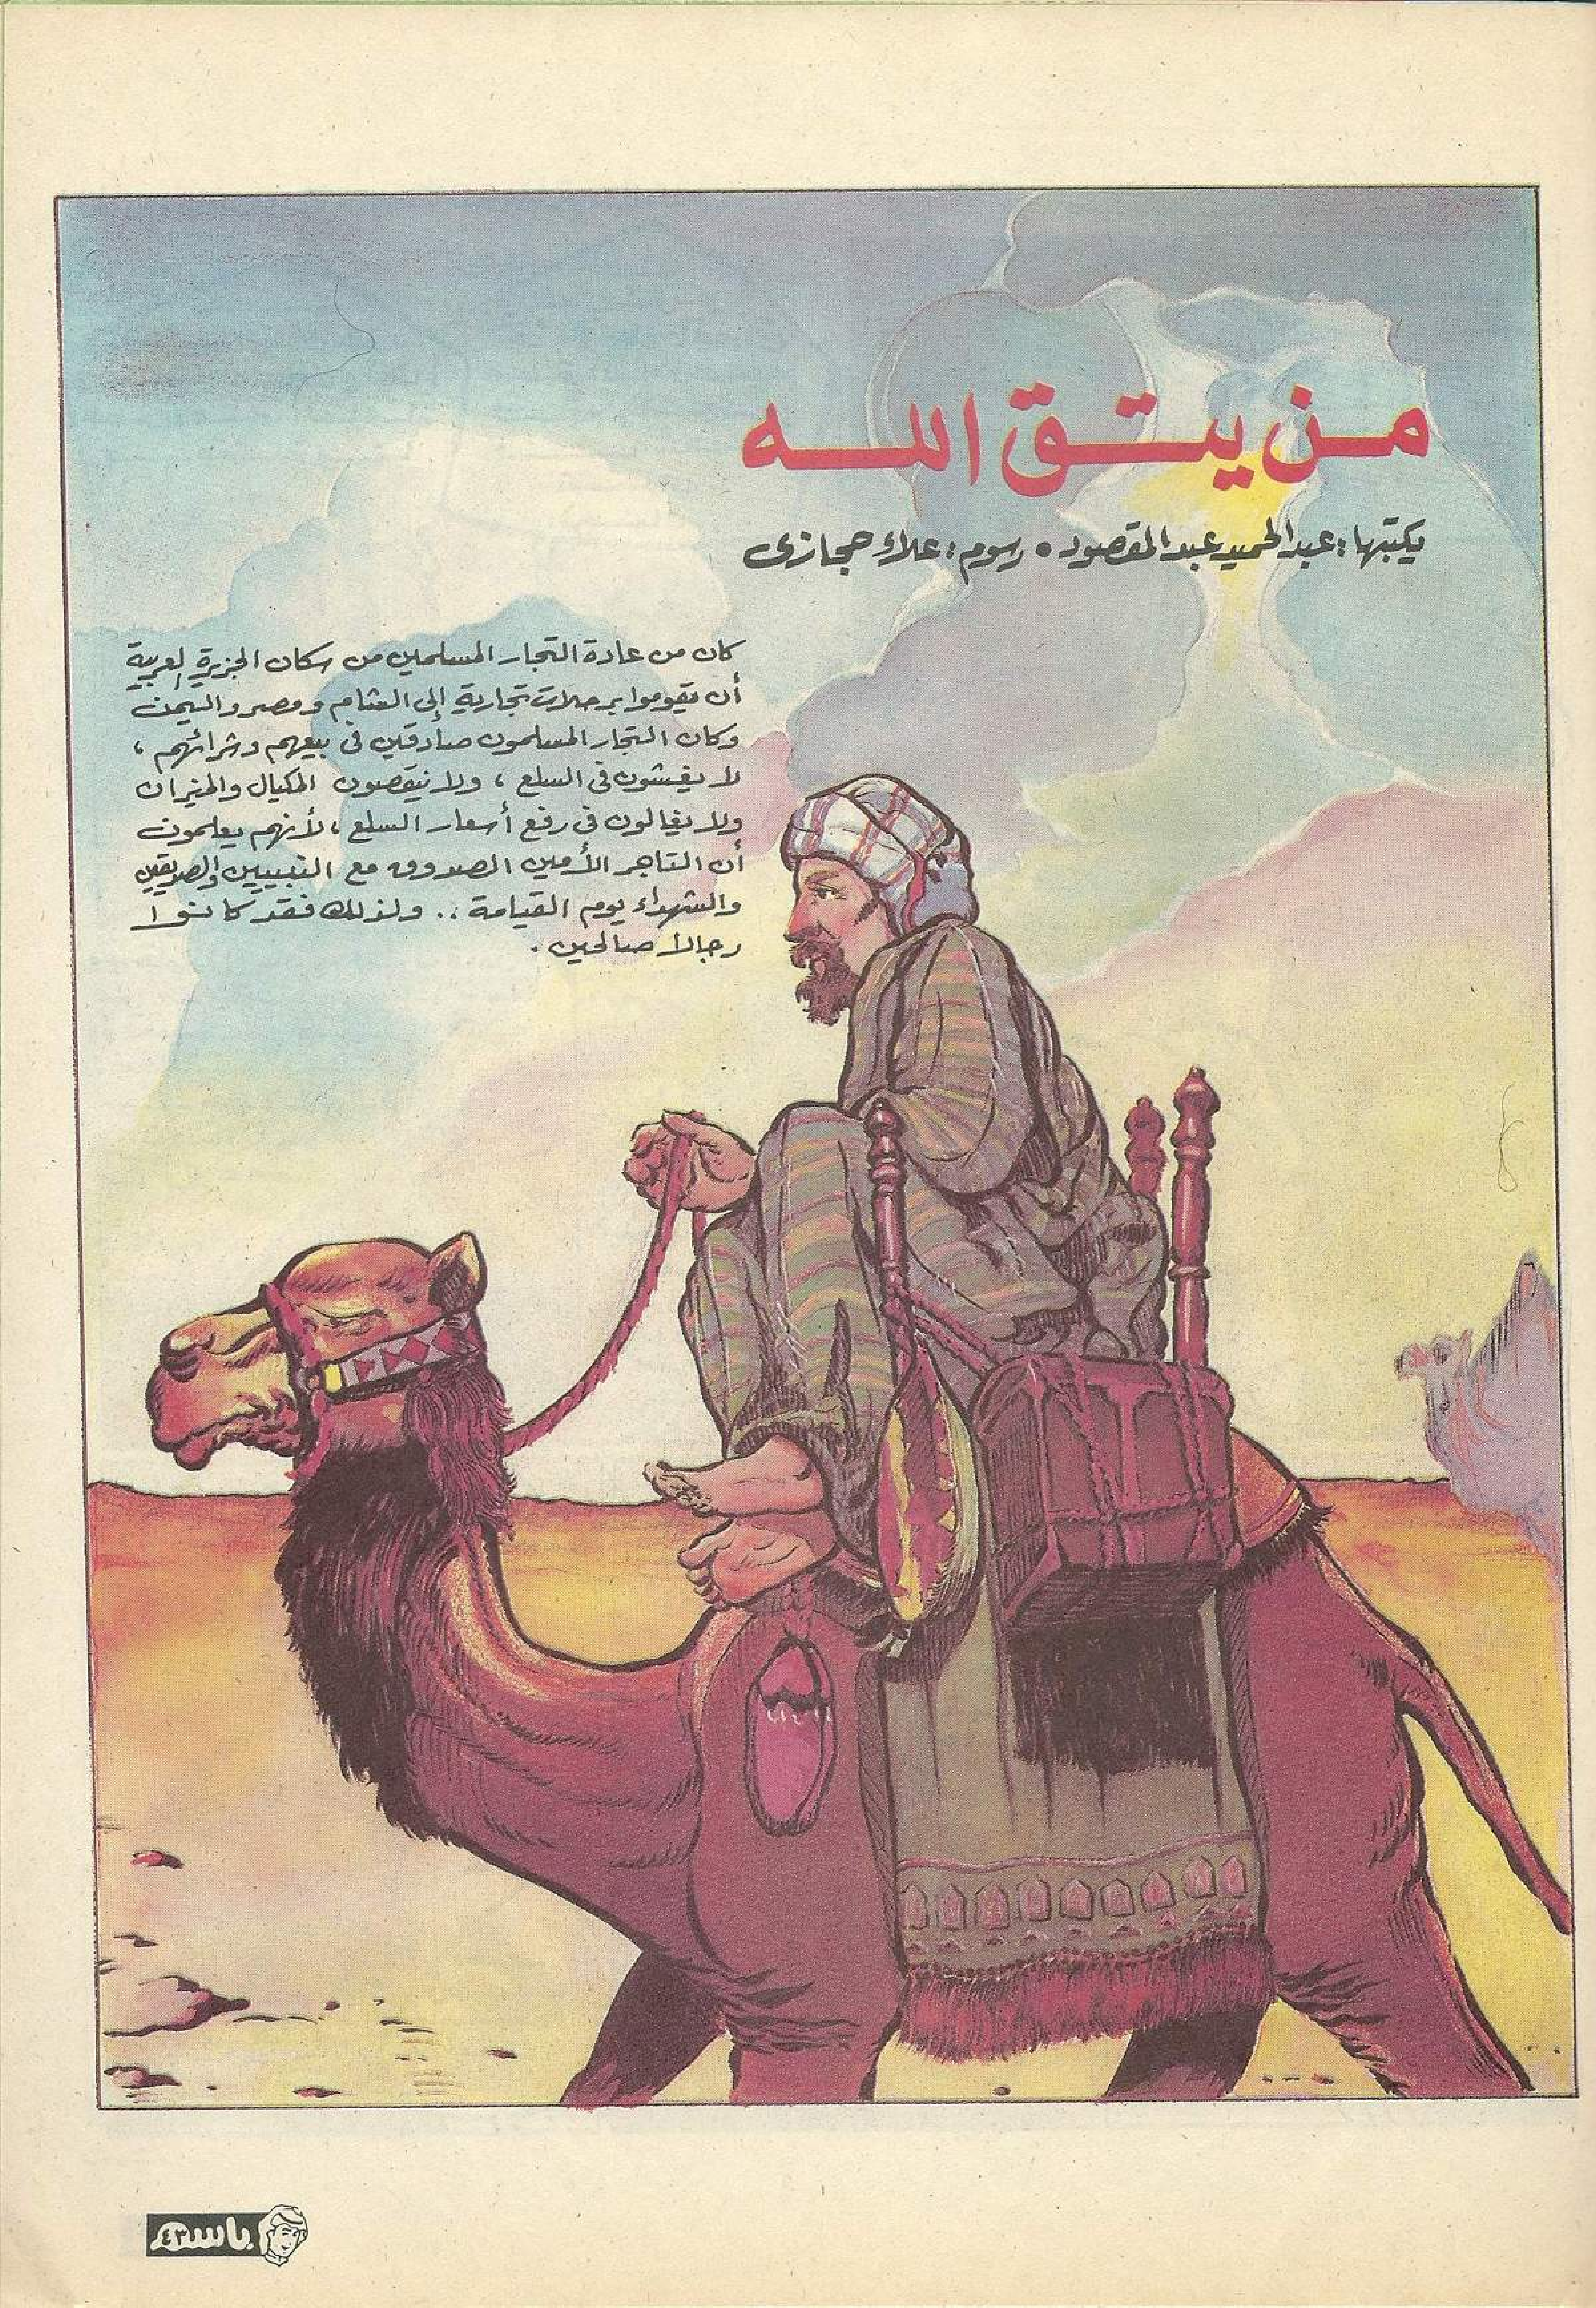 من يتق الله
يكتبها: عبد الحميد عبد المقصود • رسوم: علاء حجازى
كان من عادة التجار المسلمين من سكان الجزيرة العربية
أن يقوموا برحلات تجارية إلى الشام ومصر واليمن
وكان التجار المسلمون صادقين فى بيعهم وشرائهم ،
لا يغشون فى السلع ، ولا ينقصون المكيال والميزان
ولا يغالون فى رفع أسعار السلع ، لأنهم يعلمون
أن التاجر الأمين الصدوق مع النبيين والصديقين
والشهداء يوم القيامة .. ولذلك فقد كانوا
رجالا صالحين .
باسم
٤٣